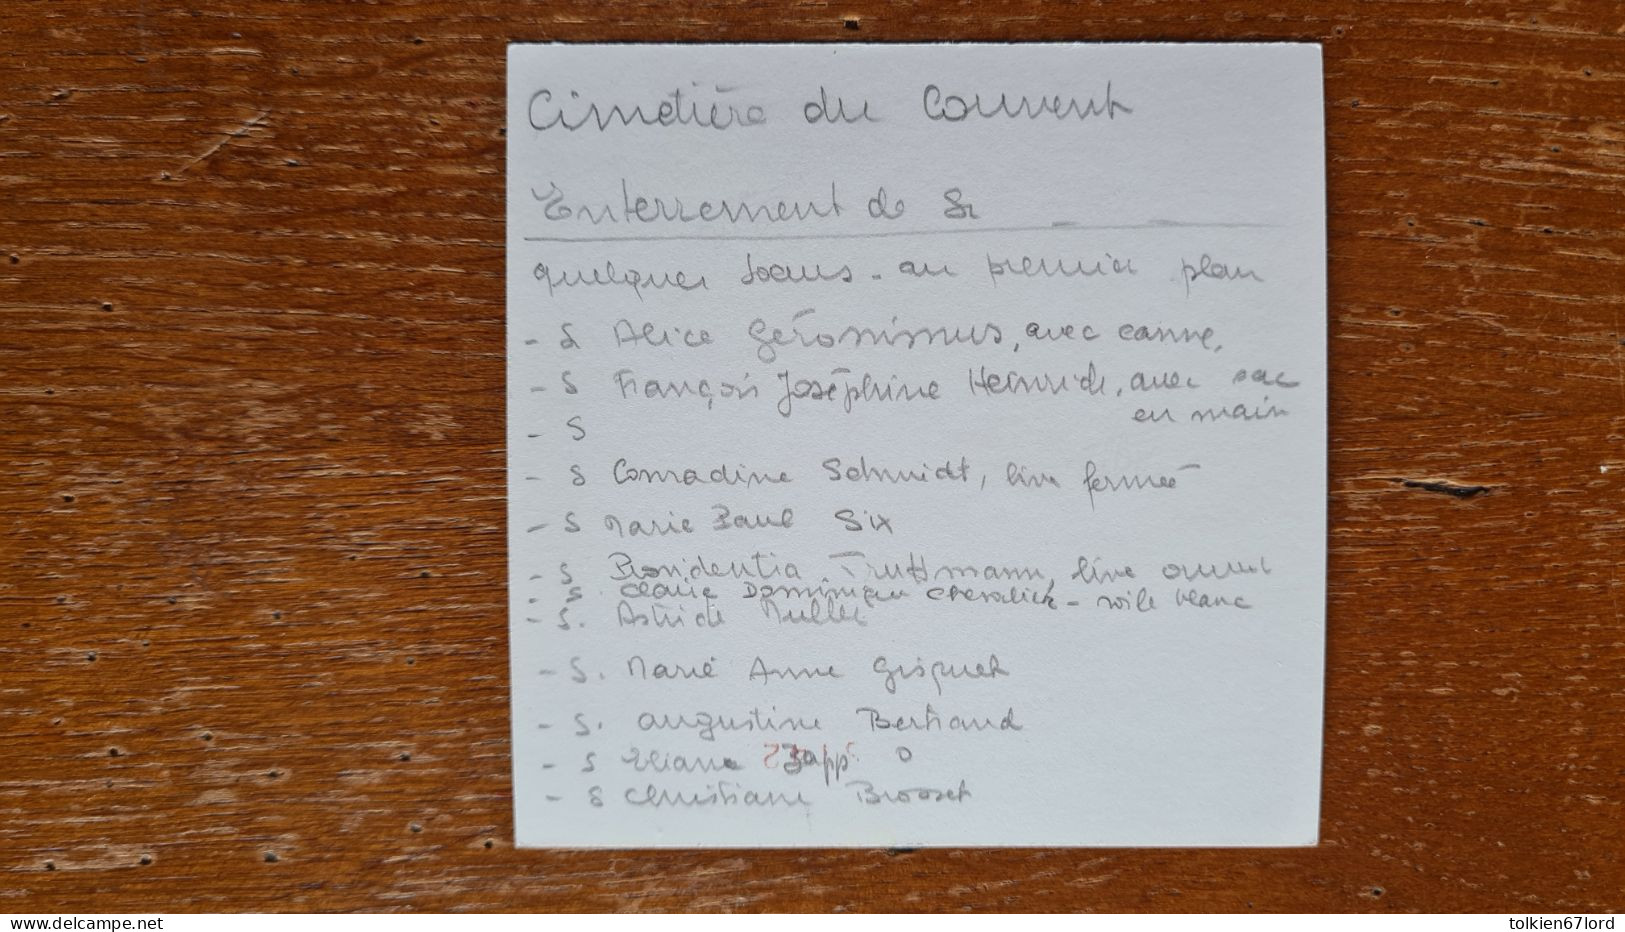 Cimetière du Couvent
Enterrement de Sr
quelques soeurs - au premier plan
- S Alice Géronimus, avec canne,
- S François Joséphine Heinrich, avec sac
en main
- S
- S Conradine Schmidt, livre fermé
- S Marie Paul Six
- S Providentia Truttmann, livre ouvert
- S. Claire Dominique Chevalier - voile blanc
- S. Astride Muller
- S. Marie Anne Grisquet
- S. Augustine Bertrand
- S Eliane Zapp
- S Christiane Brosset
www.delcampe.net
tolkien67lord